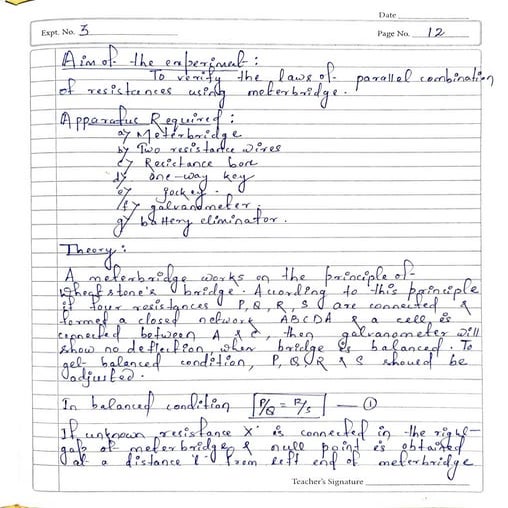 Date
Expt. No. 3
Page No. 12
Aim of the experiment :
To verify the laws of parallel combination
of resistances using meterbridge.
Apparatus Required :
a) Meterbridge
b) Two resistance wires
c) Resistance box
d) one-way key
e) jockey.
f) galvanometer.
g) battery eliminator.
Theory :
A meterbridge works on the principle of
Wheatstone's bridge. According to this principle
if four resistances P, Q, R, S are connected &
formed a closed network ABCDA & a cell is
connected between A & C, then galvanometer will
show no deflection, when bridge is balanced. To
get balanced condition, P, Q, R & S should be
adjusted.
In balanced condition P/Q = R/S — ①
If unknown resistance 'X' is connected in the right
gap of meterbridge & null point is obtained
at a distance 'l' from left end of meterbridge
Teacher's Signature